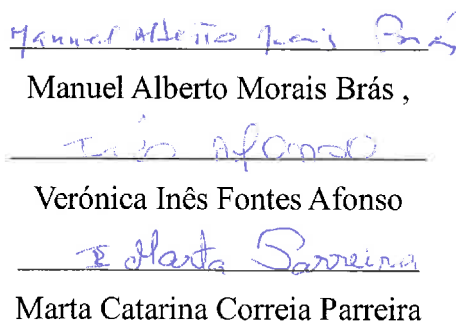 Manuel Alberto Morais Brás
Manuel Alberto Morais Brás ,
Inês Afonso
Verónica Inês Fontes Afonso
Marta Parreira
Marta Catarina Correia Parreira